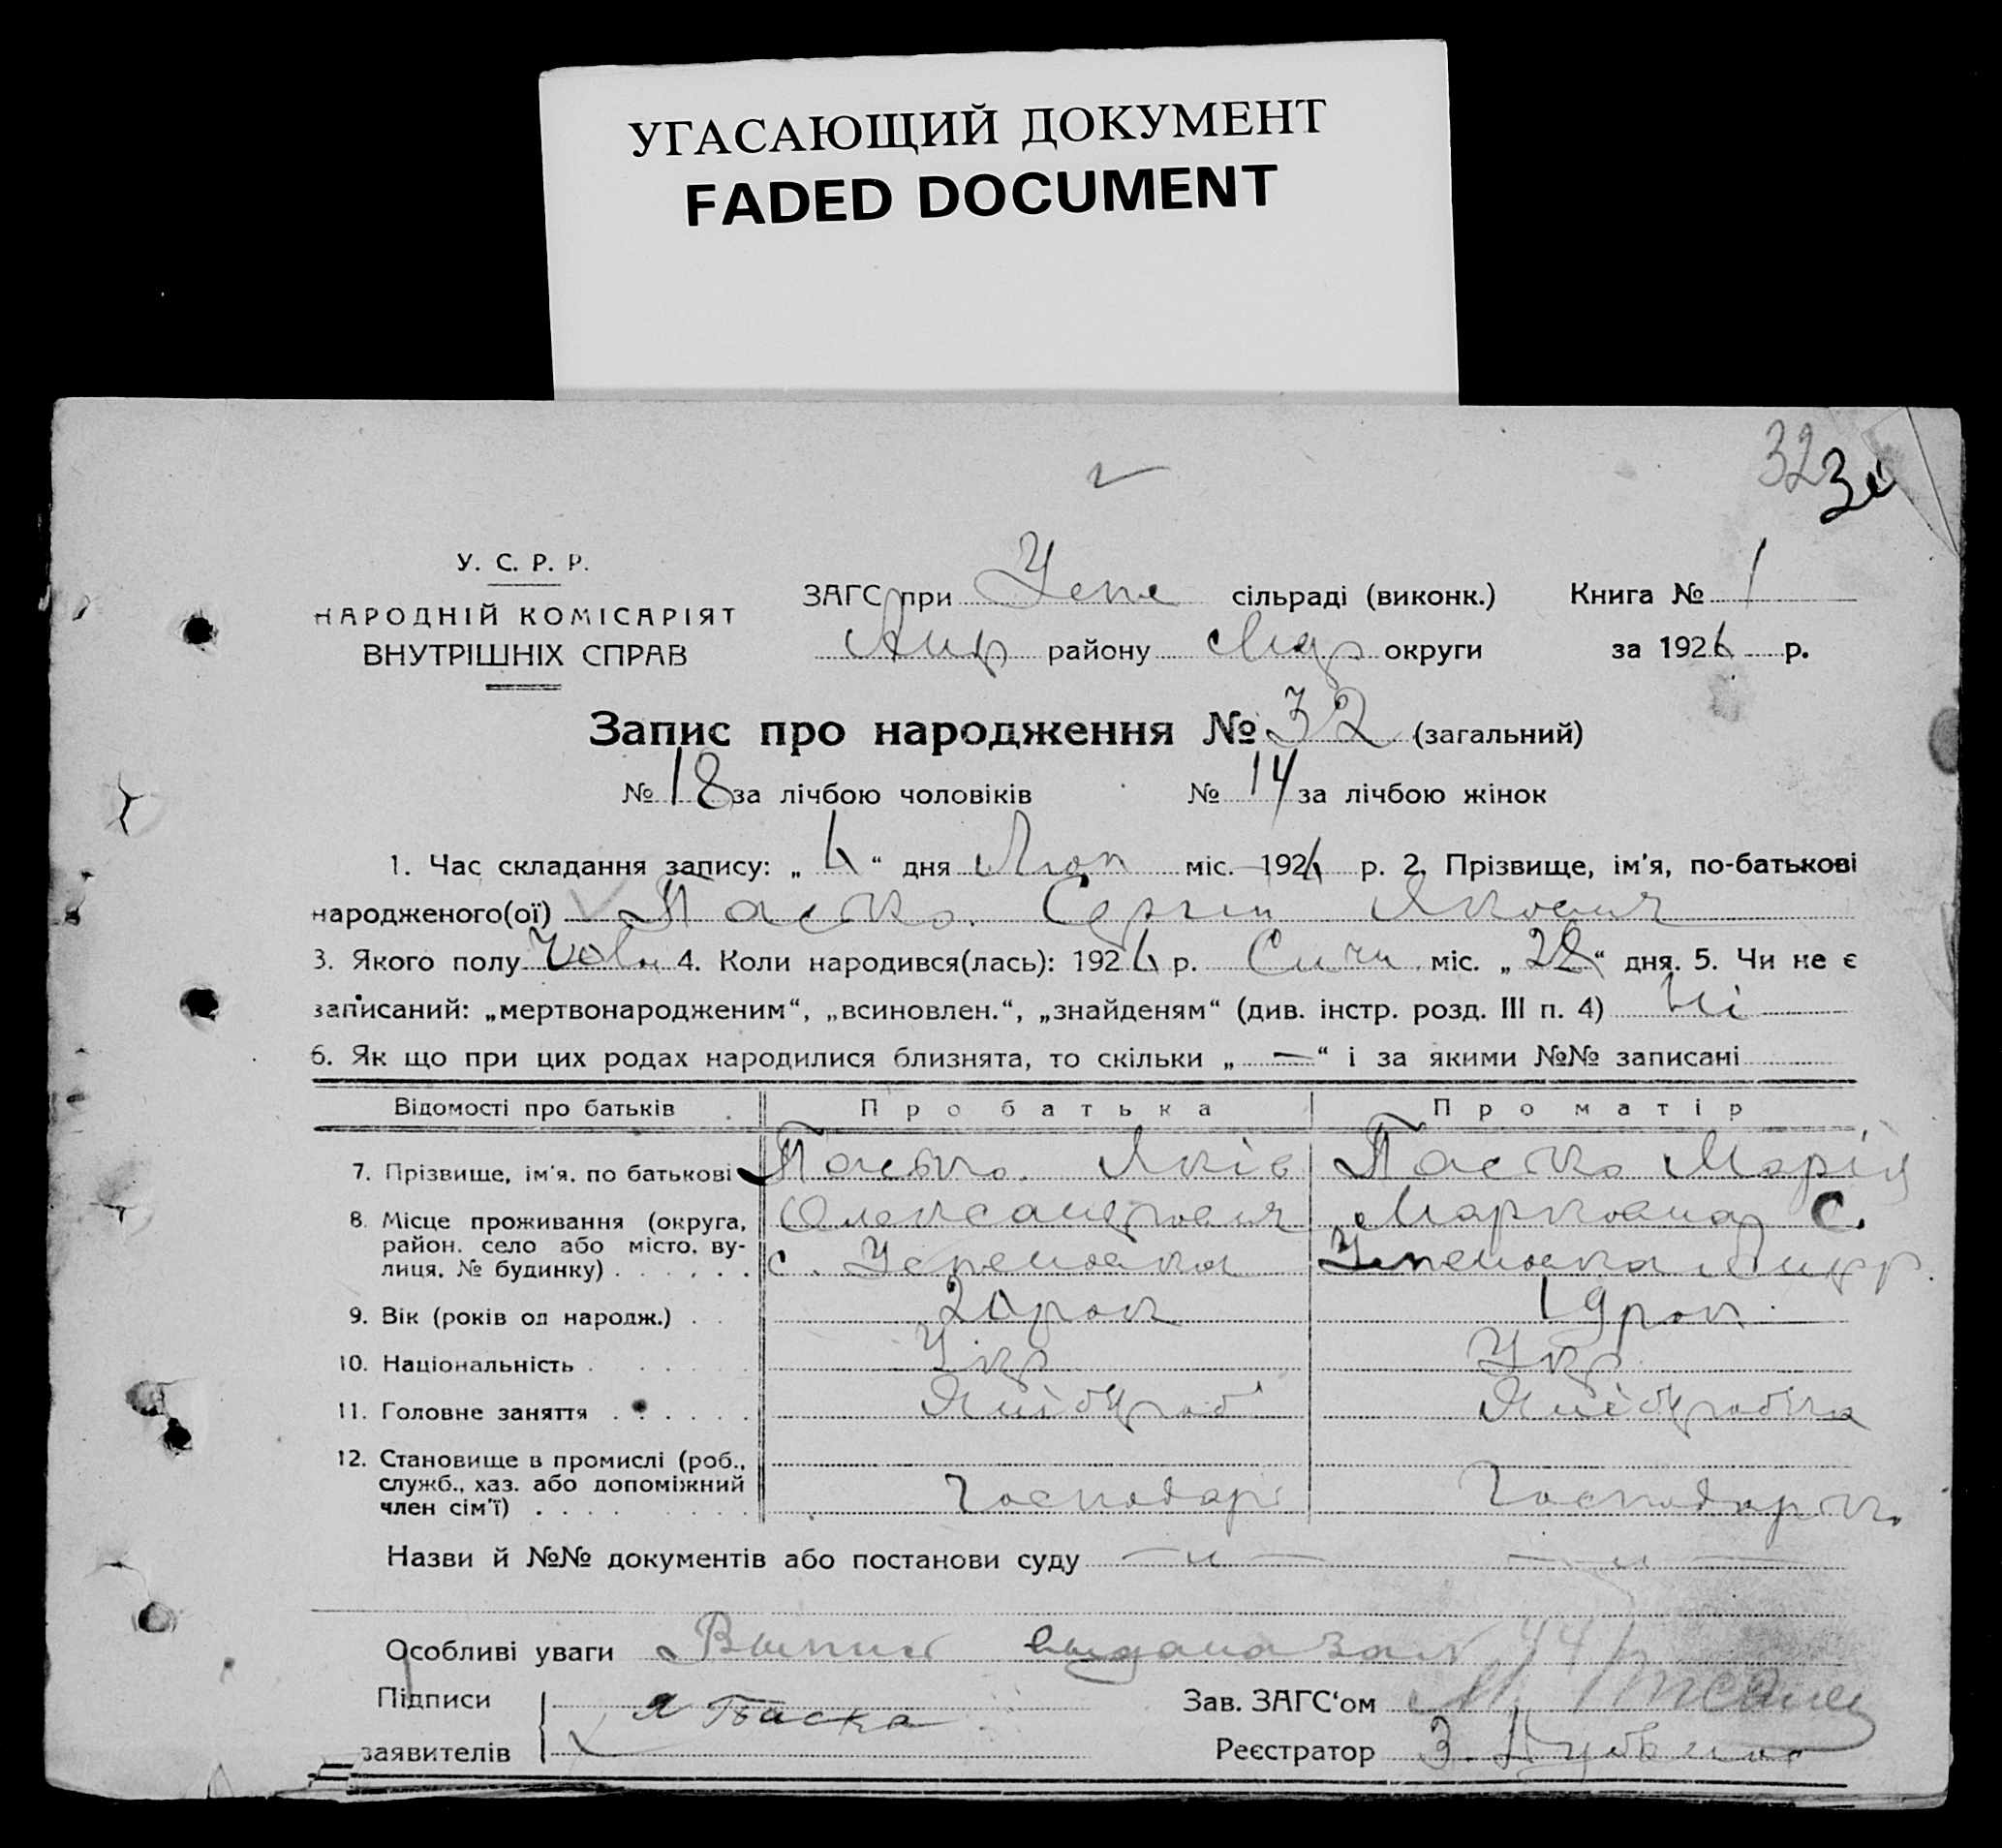 УГАСАЮЩИЙ ДОКУМЕНТ
FADED DOCUMENT
32
У. С. Р. Р.
НАРОДНІЙ КОМІСАРІЯТ
ВНУТРІШНІХ СПРАВ
ЗАГС при Успе сільраді (виконк.) Книга № 1
району округи за 1926 р.
Запис про народження № 32 (загальний)
№ 18 за лічбою чоловіків № 14 за лічбою жінок
1. Час складання запису: „ 6 “ дня Лют міс. 1926 р. 2. Прізвище, ім'я, по-батькові
народженого(ої) Пасько Сергій Якович
3. Якого полу Чол. 4. Коли народився(лась): 1926 р. Січн міс. „ 28 “ дня. 5. Чи не є
записаний: „мертвонародженим“, „всиновлен.“, „знайденям“ (див. інстр. розд. III п. 4) Ні
6. Як що при цих родах народилися близнята, то скільки „ — “ і за якими №№ записані
Відомості про батьків Про батька Про матір
7. Прізвище, ім'я, по батькові Пасько Яків Пасько Марія
8. Місце проживання (округа, район, село або місто, вулиця, № будинку) Олександрович Марковна С.
с. Успеновка Успеновка
9. Вік (років од народж.) 20 рок 19 рок
10. Національність Укр Укр
11. Головне заняття Хліброб Хлібробка
12. Становище в промислі (роб., служб., хаз. або допоміжний член сім'ї) Господарь Господарка
Назви й №№ документів або постанови суду — „ — — „ —
Особливі уваги Выпись выдана за №
Підписи заявителів Я Паска
Зав. ЗАГС‘ом
Реєстратор З.